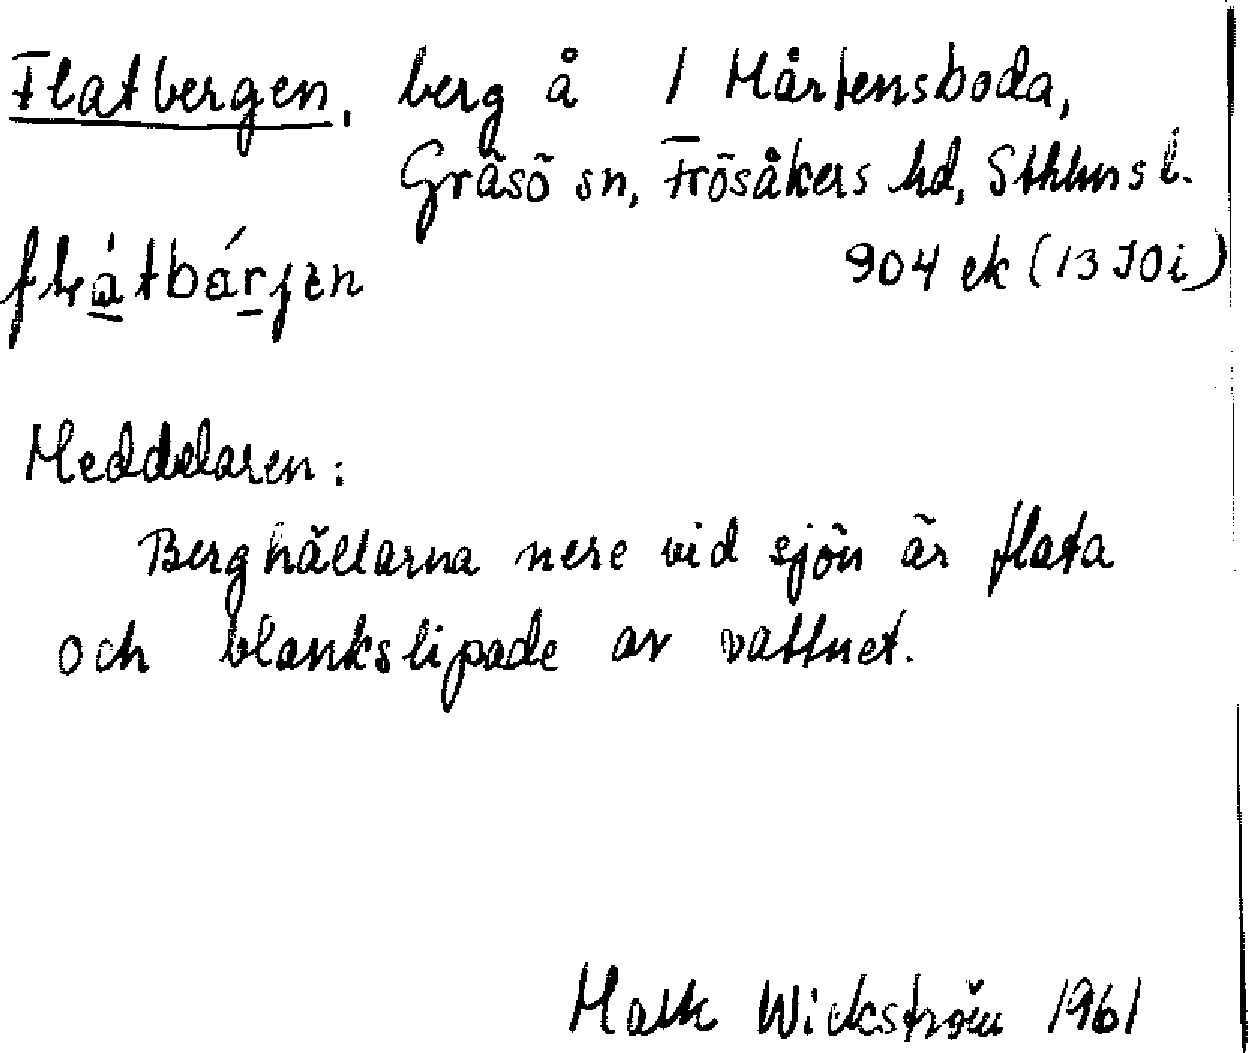 Flatbergen, berg å 1 Mårtensboda,
Gräsö sn, Frösåkers hd, Sthlms l.
904 ek (13 I 0 i)
Meddelaren:
Berghällarna nere vid sjön är flata
och blankslipade av vattnet.
Wickström 1961